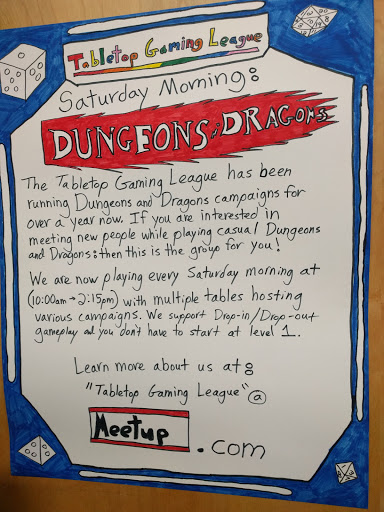 Tabletop Gaming League
Saturday Morning:
DUNGEONS & DRAGONS
The Tabletop Gaming League has been
running Dungeons and Dragons campaigns for
over a year now. If you are interested in
meeting new people while playing casual Dungeons
and Dragons: then this is the group for you!
We are now playing every Saturday morning at
(10:00am → 2:15pm) with multiple tables hosting
various campaigns. We support Drop-in/Drop-out
gameplay and you don't have to start at level 1.
Learn more about us at:
"Tabletop Gaming League" @
Meetup .com